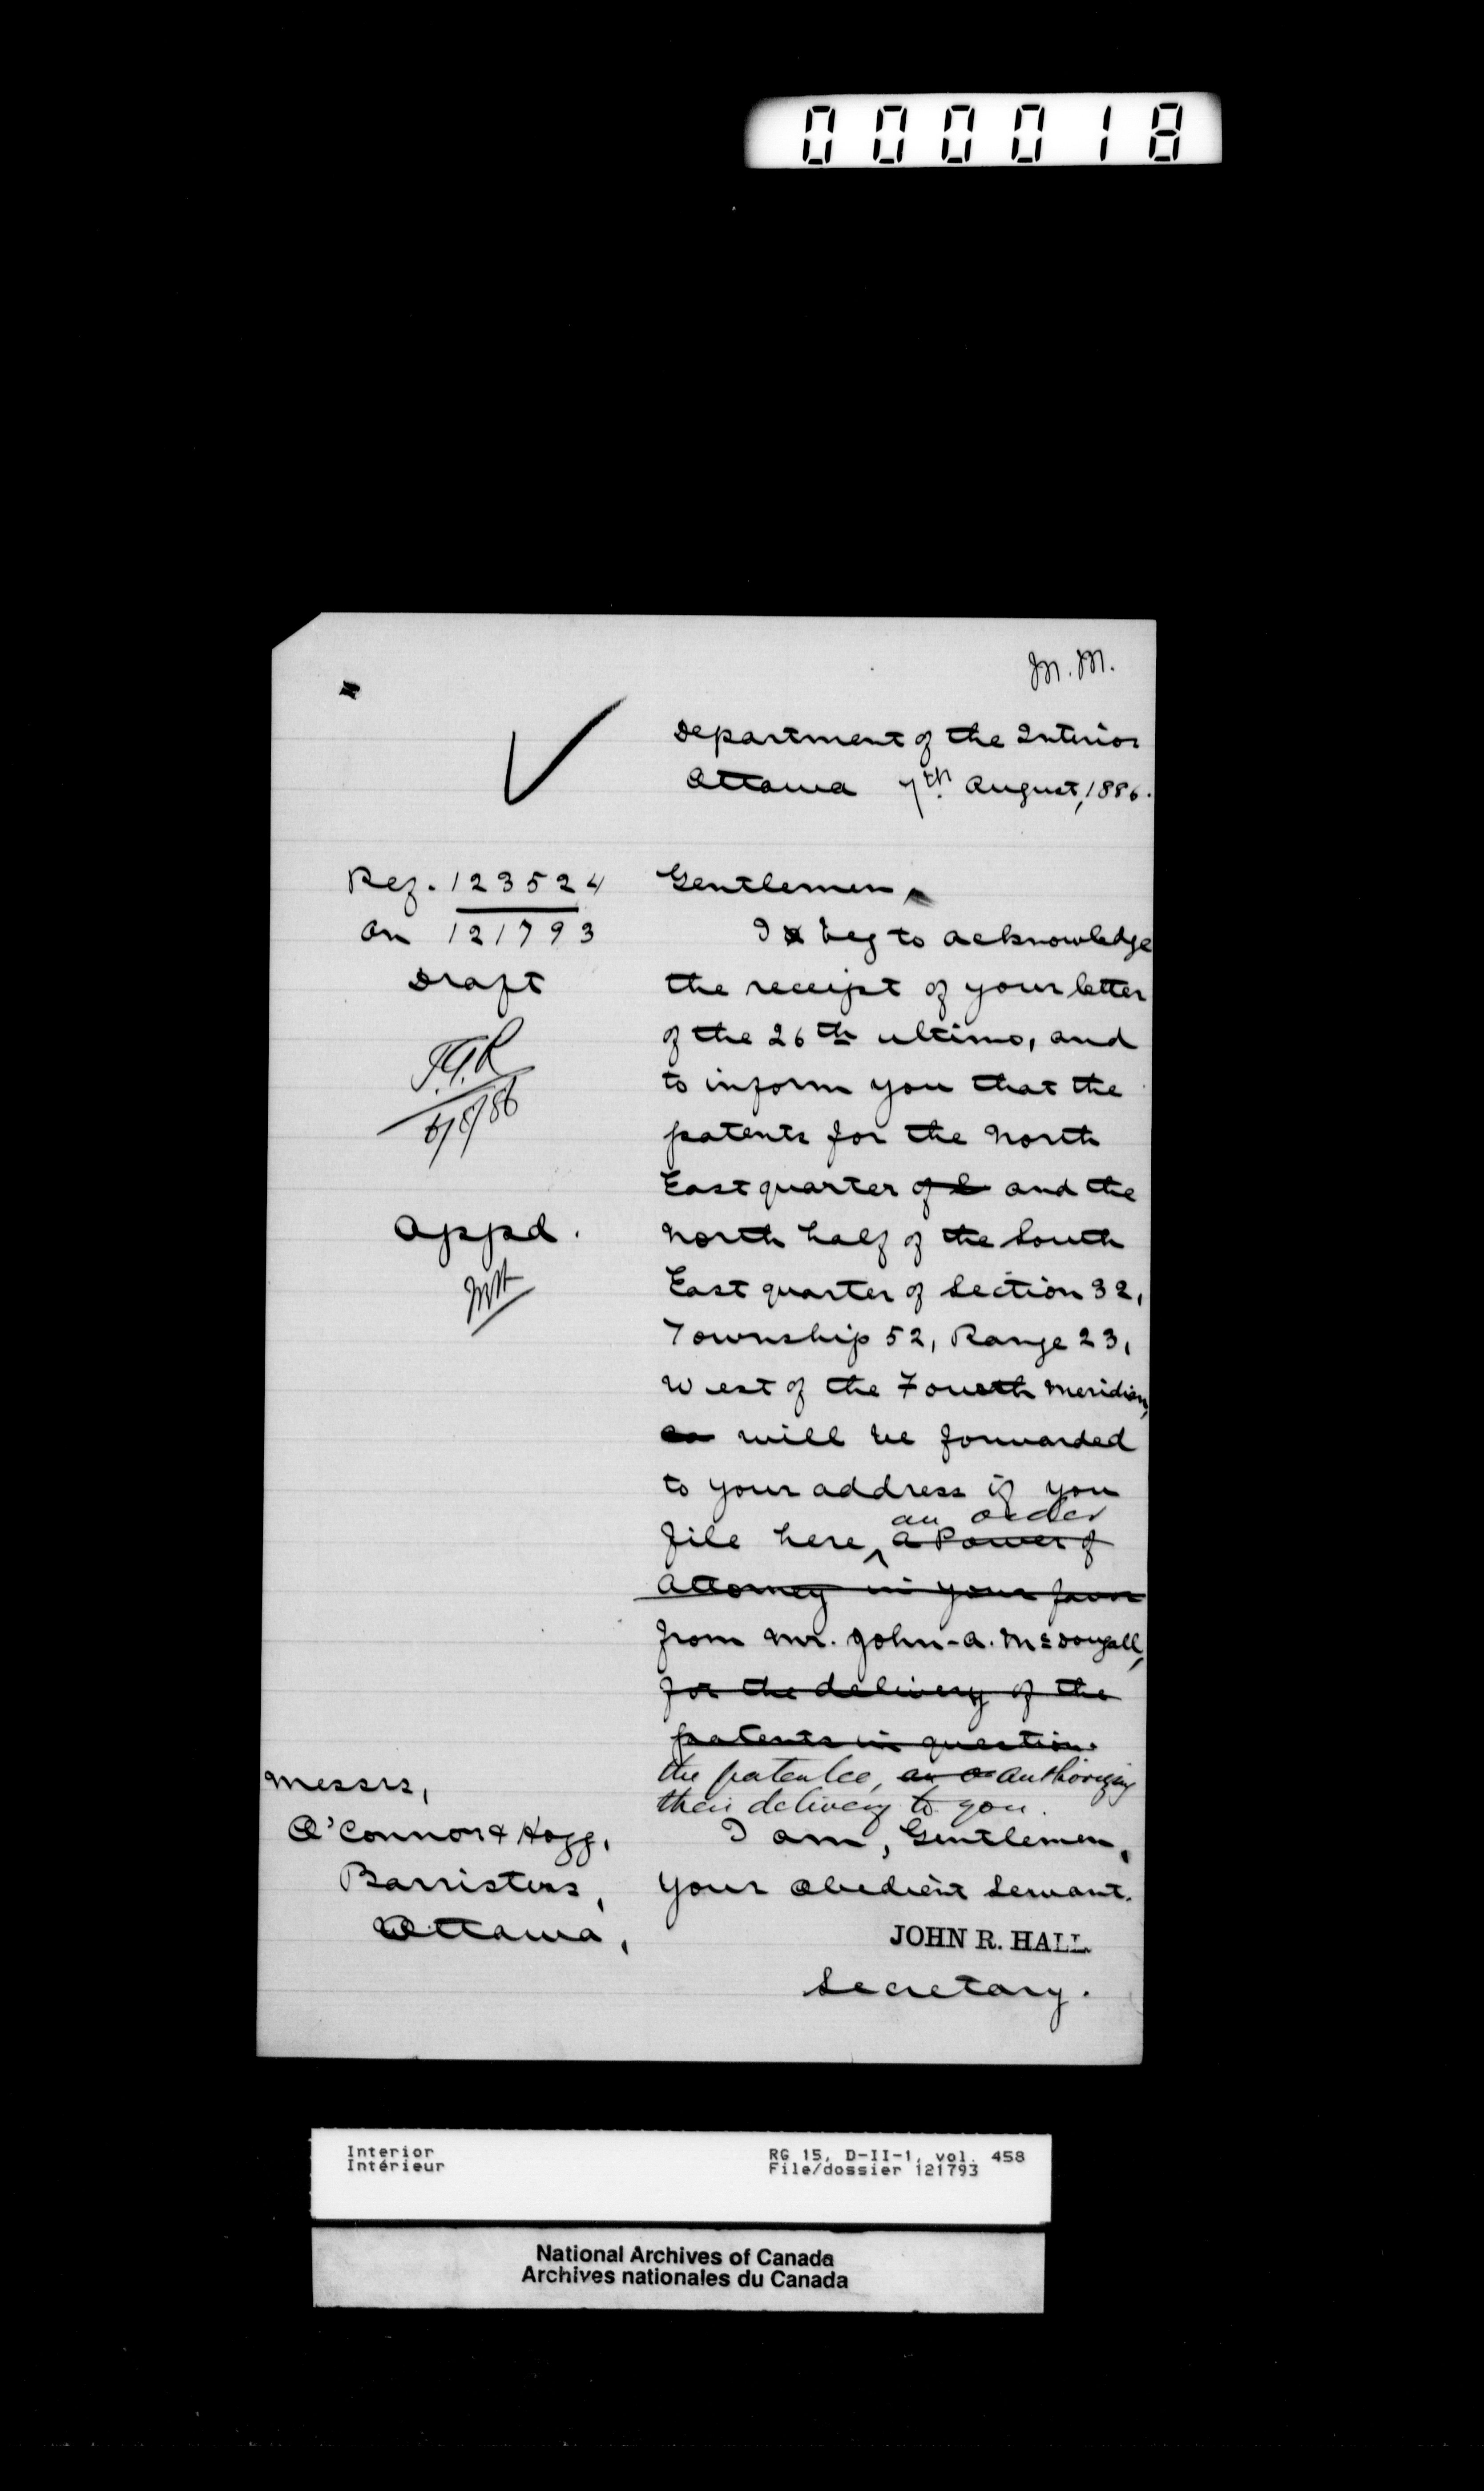 000018
M.M.
Department of the Interior
Ottawa 7th August, 1886.
Ref. 123524
on 121793
Draft
Appd.
Gentlemen,
I beg to acknowledge
the receipt of your letter
of the 26th ultimo, and
to inform you that the
patents for the North
East quarter of and the
North half of the South
East quarter of Section 32,
Township 52, Range 23,
West of the Fourth Meridian,
will be forwarded
to your address if you
an order
file here, a Power of
Attorney in your favor
from Mr. John A. McDougall,
for the delivery of the
patents in question.
the patentee, authorizing
their delivery to you.
I am, Gentlemen,
Your obedient servant.
JOHN R. HALL
Secretary.
Messrs,
O'Connor & Hogg,
Barristers,
Ottawa,
Interior
Intérieur
RG 15, D-II-1, vol. 458
File/dossier 121793
National Archives of Canada
Archives nationales du Canada